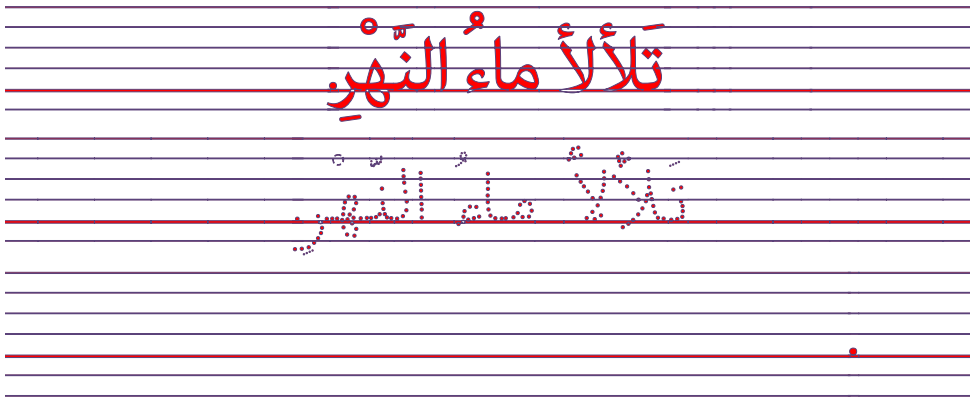 تَلألأ ماءُ النَّهْرِ.
تَلألأ ماءُ النَّهْرِ.
.